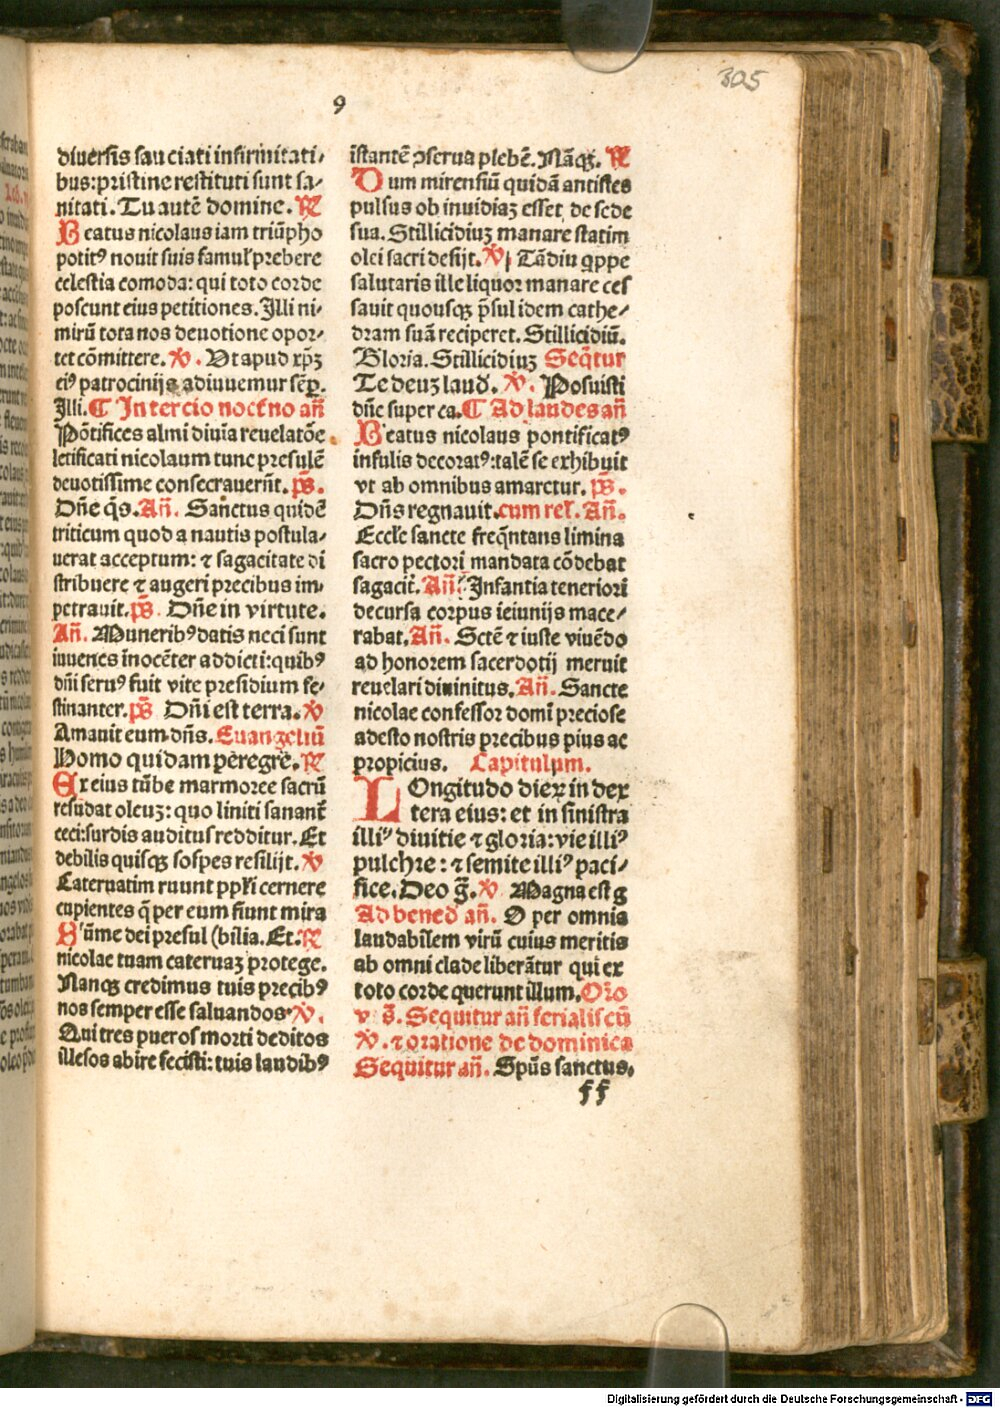 305
9
diuersis sauciati infirmitati⸗
bus: pristine restituti sunt sa⸗
nitati. Tu autē domine. ℟
Beatus nicolaus iam triūpho
potitꝰ nouit suis famuł prebere
celestia comoda: qui toto corde
poscunt eius petitiones. Illi ni⸗
mirū tota nos deuotione opor⸗
tet cōmittere. ℣. Vt apud xp̄ꝫ
eiꝰ patrocinijs adiuuemur sēꝑ.
Illi. ¶ In tercio noctno an̄
Pōtifices almi diuia reuelatōe
letificati nicolaum tunc presulē
deuotissime consecrauerūt. ps̄.
Dn̄e q̄s. An̄. Sanctus quidē
triticum quod a nautis postula⸗
uerat acceptum: ⁊ sagacitate di
stribuere ⁊ augeri precibus im⸗
petrauit. ps̄. Dn̄e in virtute.
An̄. Muneribꝰ datis neci sunt
iuuenes īnocēter addicti: quibꝰ
dn̄i seruꝰ fuit vite presidium fe⸗
stinanter. ps̄ Dn̄i est terra. ℣
Amauit eum dn̄s. Euangeliū
Homo quidam peregre. ℟
Ex eius tūbe marmoree sacrū
resudat oleuꝫ: quo liniti sanant̄
ceci: surdis auditus redditur. Et
debilis quisqꝫ sospes resilijt. ℣
Cateruatim ruunt ppłi cernere
cupientes q̄ per eum fiunt mira
Sūme dei presul (bilia. Et. ℟
nicolae tuam cateruaꝫ protege.
Nanqꝫ credimus tuis precibꝰ
nos semper esse saluandos. ℣.
Qui tres pueros morti deditos
illesos abire fecisti: tuis laudibꝰ
īstantē ꝯserua plebē. Nāqꝫ. ℟
Dum mirensiū quidā antistes
pulsus ob inuidiaꝫ esset de sede
sua. Stillicidiuꝫ manare statim
olei sacri desijt. ℣ Tādiu ꝗppe
salutaris ille liquor manare ces
sauit quousqꝫ p̄sul idem cathe⸗
dram suā reciperet. Stillicidiū.
Gloria. Stillicidiuꝫ Seq̄tur
Te deuꝫ laud. ℣. Posuisti
dn̄e super ca. ¶ Ad laudes an̄
Beatus nicolaus pontificatꝰ
infulis decoratꝰ: talē se exhibuit
vt ab omnibus amaretur. ps̄.
Dn̄s regnauit. cum rel. An̄.
Ecclē sancte freq̄ntans limina
sacro pectori mandata cōdebat
sagacit̄. An̄. Infantia teneriori
decursa corpus ieiunijs mace⸗
rabat. An̄. Sctē ⁊ iuste viuēdo
ad honorem sacerdotij meruit
reuelari diuinitus. An̄. Sancte
nicolae confessor domī preciose
adesto nostris precibus pius ac
propicius. Capitulum.
LOngitudo dieꝝ in dex
tera eius: et in sinistra
illiꝰ diuitie ⁊ gloria: vie illiꝰ
pulchre: ⁊ semite illiꝰ paci⸗
fice. Deo g̅. ℣ Magna est g
Ad bened an̄. O per omnia
laudabilem virū cuius meritis
ab omni clade liberātur qui ex
toto corde querunt illum. Oro
v s̄. Sequitur an̄ ferialis cū
℣. ⁊ oratione de dominica
Sequitur an̄. Spūs sanctus.
ff
Digitalisierung gefördert durch die Deutsche Forschungsgemeinschaft - DFG